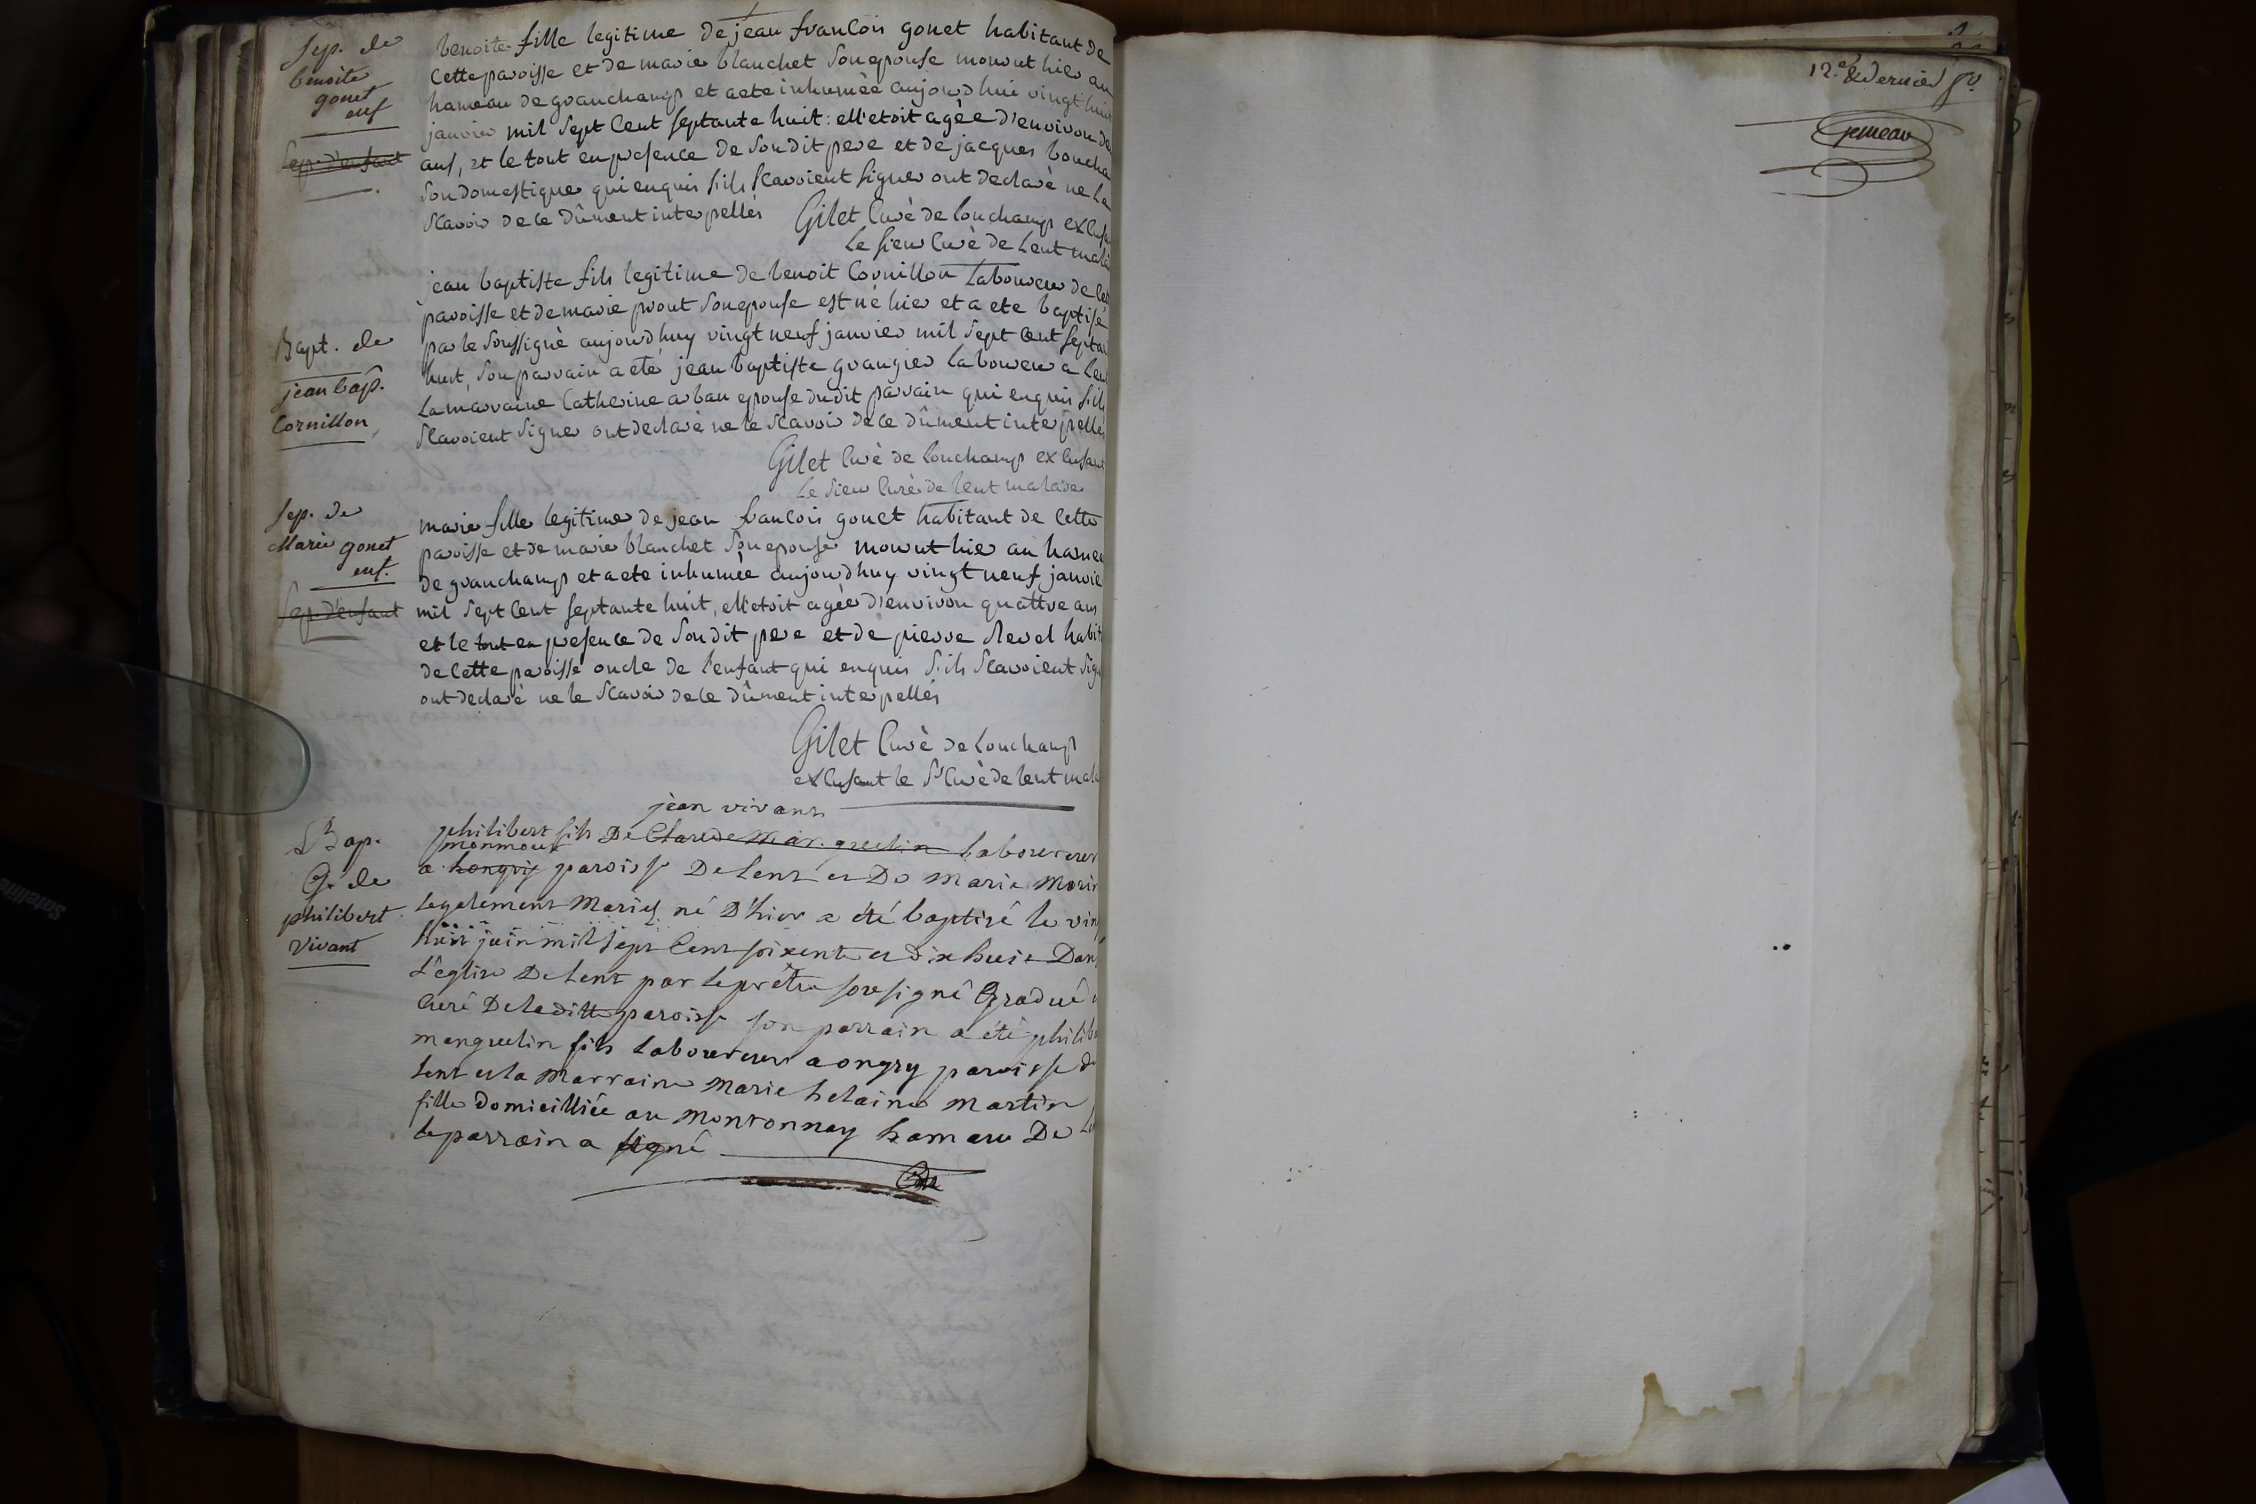 Sep. de
benoite
gonet
enf
Sep. d'enfant
benoite fille legitime de jean francois gonet habitant de
cette paroisse et de marie blanchet son epouse mourut hier au
hameau de granchamp et a ete inhumèe aujourd'hui vingt huit
janvier mil sept cent septante huit: ell'etoit agèe d'environ de
ans, et le tout en presence de son dit pere et de jacques boucha
son domestique qui enquis s'ils scavoient signer ont declarè ne le
scavoir de ce dûment interpellès
Gilet Curè de Conchamp excusa
le sieur Curè de Lent mala
Bapt. de
jean bap.
Cornillon,
jean baptiste fils legitime de benoit Cornillon Laboureur de cet
paroisse et de marie prout son epouse est nè hier et a ete baptisè
par le soussignè aujourd'huy vingt neuf janvier mil sept cent septan
huit, son parrain a etè jean baptiste grangier laboureur a Len
La marraine Catherine arban epouse dudit parrain qui enquis s'ils
scavoient signer ont declarè ne le scavoir de ce dûment interpellès
Gilet Curè de Conchamp excusant
le sieur Curè de Lent malade
Sep. de
Marie gonet
enf.
Sep. d'enfant
marie fille legitime de jean francois gonet habitant de cette
paroisse et de marie blanchet son epouse mourut hier au hamea
de granchamp et a ete inhumèe aujourd'huy vingt neuf janvie
mil sept cent septante huit, ell'etoit agèe d'environ quattre ans
et le tout en presence de son dit pere et de pierre revel habit
de cette paroisse oncle de l'enfant qui enquis s'ils scavoient sign
ont declarè ne le scavoir de ce dûment interpellès
Gilet Curè de Conchamp
excusant le Sr Curè de Lent mala
Bap.
G. de
philibert
Vivant
jean vivant
philibert fils De Claude Marguelin laboureur
monmoux
a hongrij paroisse De Lent et De Marie Morin
legalement Mariés né D'hier a été baptisé le vin
huit juin mil sept Cent soixente et dix huit Dans
L'eglise De Lent par le prêtre sousigné Gradué
Curé De la ditte paroisse son parrain a été philib
manguelin fils laboureur a ongry paroisse de
Lent et la Marraine Marie helaine Martin
fille Domicilliée au Montonnay hameau De L
le parrain a signé
12.e & dernier fo.